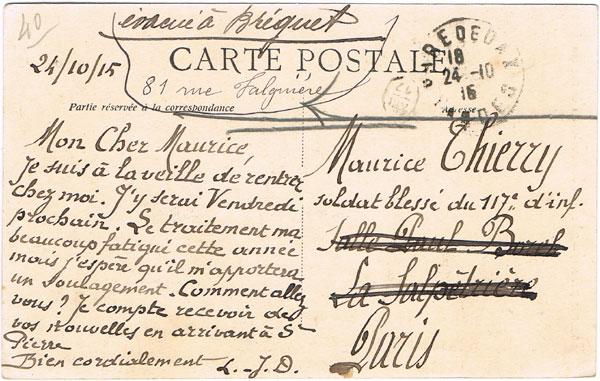 40
évacué à Bréguet
CARTE POSTALE
24/10/15
81 rue Falguière
Partie réservée à la correspondance
18
24-10
15
Mon Cher Maurice,
Je suis à la veille de rentrer
chez moi. J'y serai Vendredi
prochain. Le traitement m'a
beaucoup fatigué cette année
mais j'espère qu'il m'apportera
un soulagement. Comment allez
vous? Je compte recevoir de
vos nouvelles en arrivant à St
Pierre
Bien cordialement L.-J.D.
Maurice Thierry
soldat blessé du 117e d'inf.
Salle Paul
La Salpêtrière
Paris